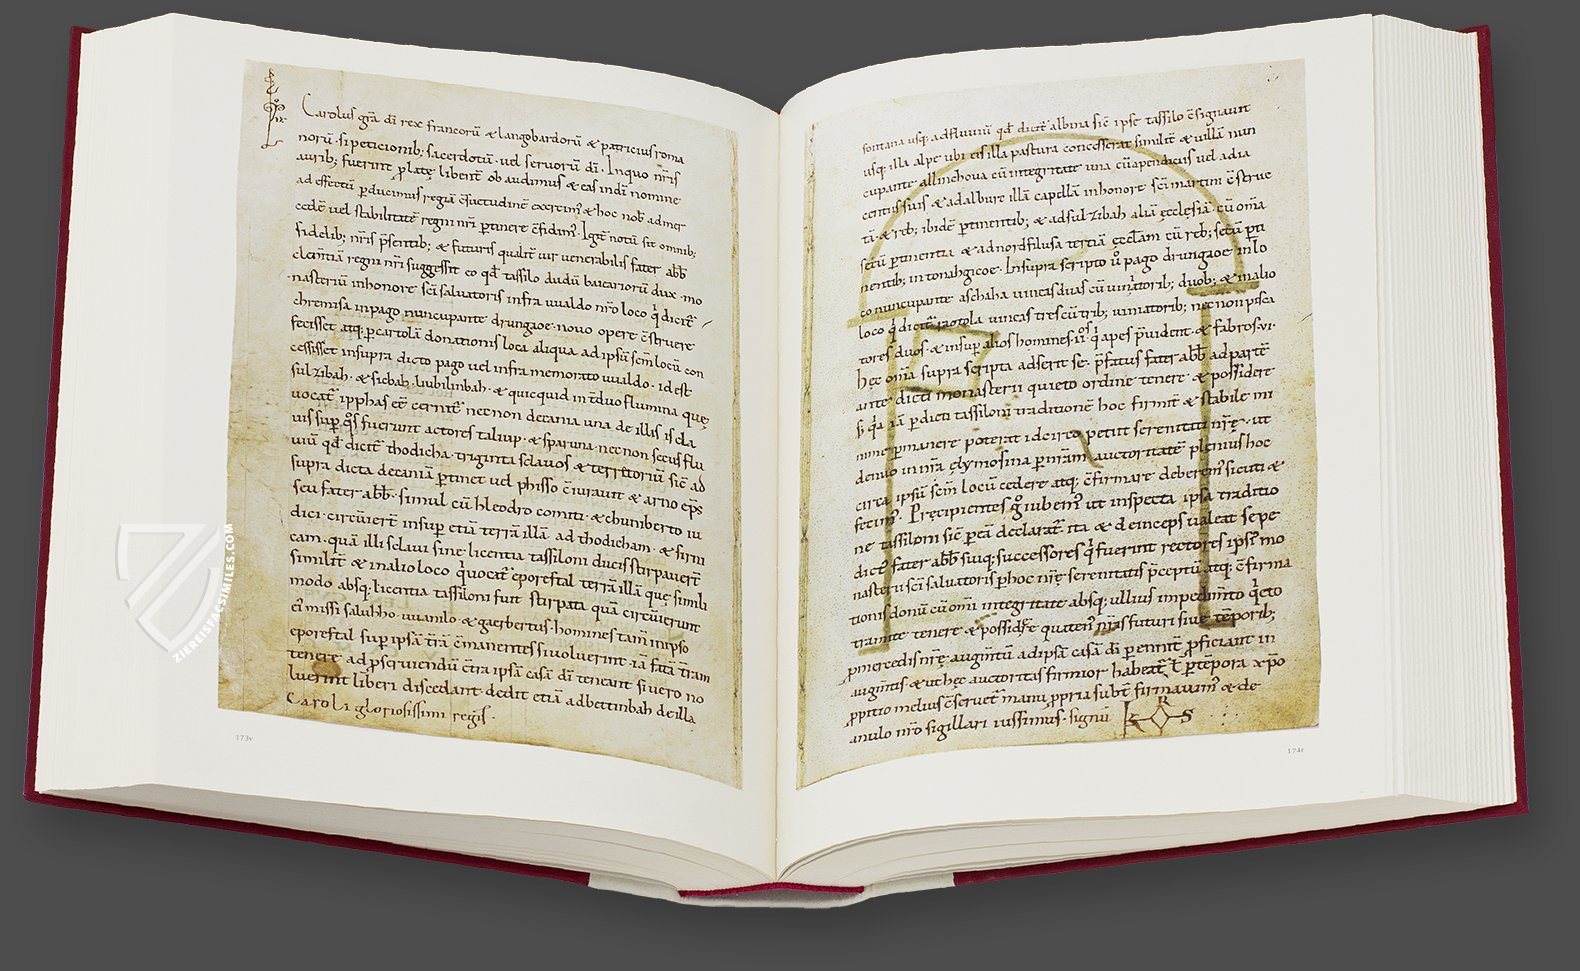 Carolus gra di rex francorū & langobardorū & patricius roma
norū. Si peticionib; sacerdotū uel seruorū di. In quo nris
aurib; fuerint plate libent ob audimus & eas in di nomine
ad effectū pducimus regiā c̄suetudinē exercem & hoc nob ad mer
cedē uel stabilitatē regni nri ptinere c̄fidim. Igit notū sit omnib;
fidelib; nris p̄sentib; & futuris qualit uir uenerabilis fater abb
clemtiā regni nri suggessit eo qd tassilo dudū baicariorū dux mo
nasteriū in honore sci saluatoris infra uualdo nro loco q dicit
chremisa in pago nuncupante drungaoe nouo opere c̄struere
fecisset atq; p cartolā donationis loca aliqua ad ipsū scm locū con
cessisset insupra dicto pago uel infra memorato uualdo. id est
sulzibah. & sicbah. liubilinbah. & quicquid inter duo flumina que
uocat ipphas et cernit nec non decania una de illis scla
uis sup qos fuerunt actores taliup. & sparuna nec non secus flu
uiū qd dicit thodicha. triginta sclauos & territoriū sic ad
supra dicta decaniā ptinet uel phisso c̄iurauit & arno eps
seu fater abb. simul cū hleodro comiti. & chuniberto iu
dici. circuiert insup etiā terrā illā ad thodicham. & sirni
cam. quā illi sclaui sine licentia tassiloni ducis stirpauert
similit & in alio loco q uocat eporestal terrā illā que simili
modo absq; licentia tassiloni fuit stirpati quā circuierunt
ei missi saluhho. uuanilo. & gaerbertus. homines tam in ipso
eporestal sup ipsā trā c̄manentes si uoluerint iā fatā trram
tenere ad psquiendū c̄tra ipsā casā di teneant si uero no
luerint liberi discedant. dedit etiā ad bettinbah de illa
Caroli gloriosissimi regis.
173v
fontana usq; ad fluuiū qd dicit albina sic ipse tassilo c̄signauit
usq; illa alpe ubi eis illa pastura concesserat similit & uillā nun
cupante allinchoua cū integritate una cū apendicius uel adia
centiis suis & ad alburc illā capellā in honore sci martini c̄struc
tā. & reb; ibidē ptinentib; & ad sulzibah aliā ecclesiā cū omā
scdū ptinentia & ad nordfilusa tertiā ecclam cū reb; scdū pti
nentib; in tonahgaoe. Insupra scripto u pago drungaoe in lo
co nuncupante aschaha uineas duas cū uinatorib; duob; & in alio
loco q dicit raotola uineas tres cū trib; uinatorib; nec non pisca
tores duos. & insup alios homines. ii. q apes puident. & fabros. vi.
hec omā supra scripta adserit se. p̄fatus fater abb ad partē
ante dicti monasterii quieto ordine tenere & possidere
s; qa iā pdicti tassiloni traditione hoc firmit & stabile mi
nime pmanere poterat idcirco petiit serenitati nrē. ut
denuo in nrā elymosina p nrām auctoritatē plenius hoc
circa ipsū scm locū cedere atq; c̄firmare deberem sicuti &
fecim. Precipientes g iubem ut inspecta ipsa traditio
ne tassiloni sic p eā declarat ita & deinceps ualeat sepe
dict fater abb suiq; successores q fuerint rectores ipsi mo
nasterii sci saluatoris p hoc nrē serenitatis pceptū atq; c̄firma
tionis donū cū omi integritate absq; ullius impedimto qeto
tramite tenere & possidere quaten nris futuri siue tēporib;
p mercedis nrē augmtū ad ipsā casā di p ennit pficiant in
augmtis & ut hec auctoritas firmior habeat t p tēpora & xpo
ppitio melius c̄seruet manu ppria subt firmauim & de
anulo nro sigillari iussimus. signū K R S
174r
ZIEREISFACSIMILES.COM